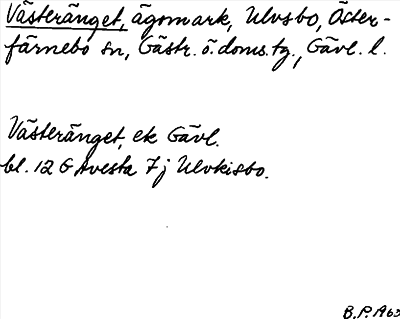 Västeränget, ägomark, Ulvsbo, Öster-
färnebo sn, Gästr. ö. doms. tg., Gävl. l.
Västeränget, ek Gävl.
bl. 12 G Avesta 7j Ulvkisbo.
B.P. A63